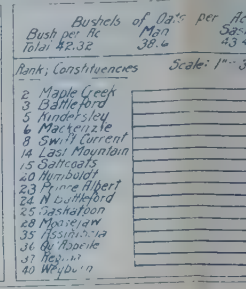 Bushels of Oats per Ac
Bush per Ac Man Sas
Total 42.32 38.6 43.4
Rank; Constituencies Scale: 1"=3
2 Maple Creek
3 Battleford
5 Kindersley
6 Mackenzie
8 Swift Current
14 Last Mountain
15 Saltcoats
20 Humboldt
23 Prince Albert
24 N Battleford
25 Saskatoon
28 Moosejaw
35 Assiniboia
36 Qu Appelle
37 Regina
40 Weyburn